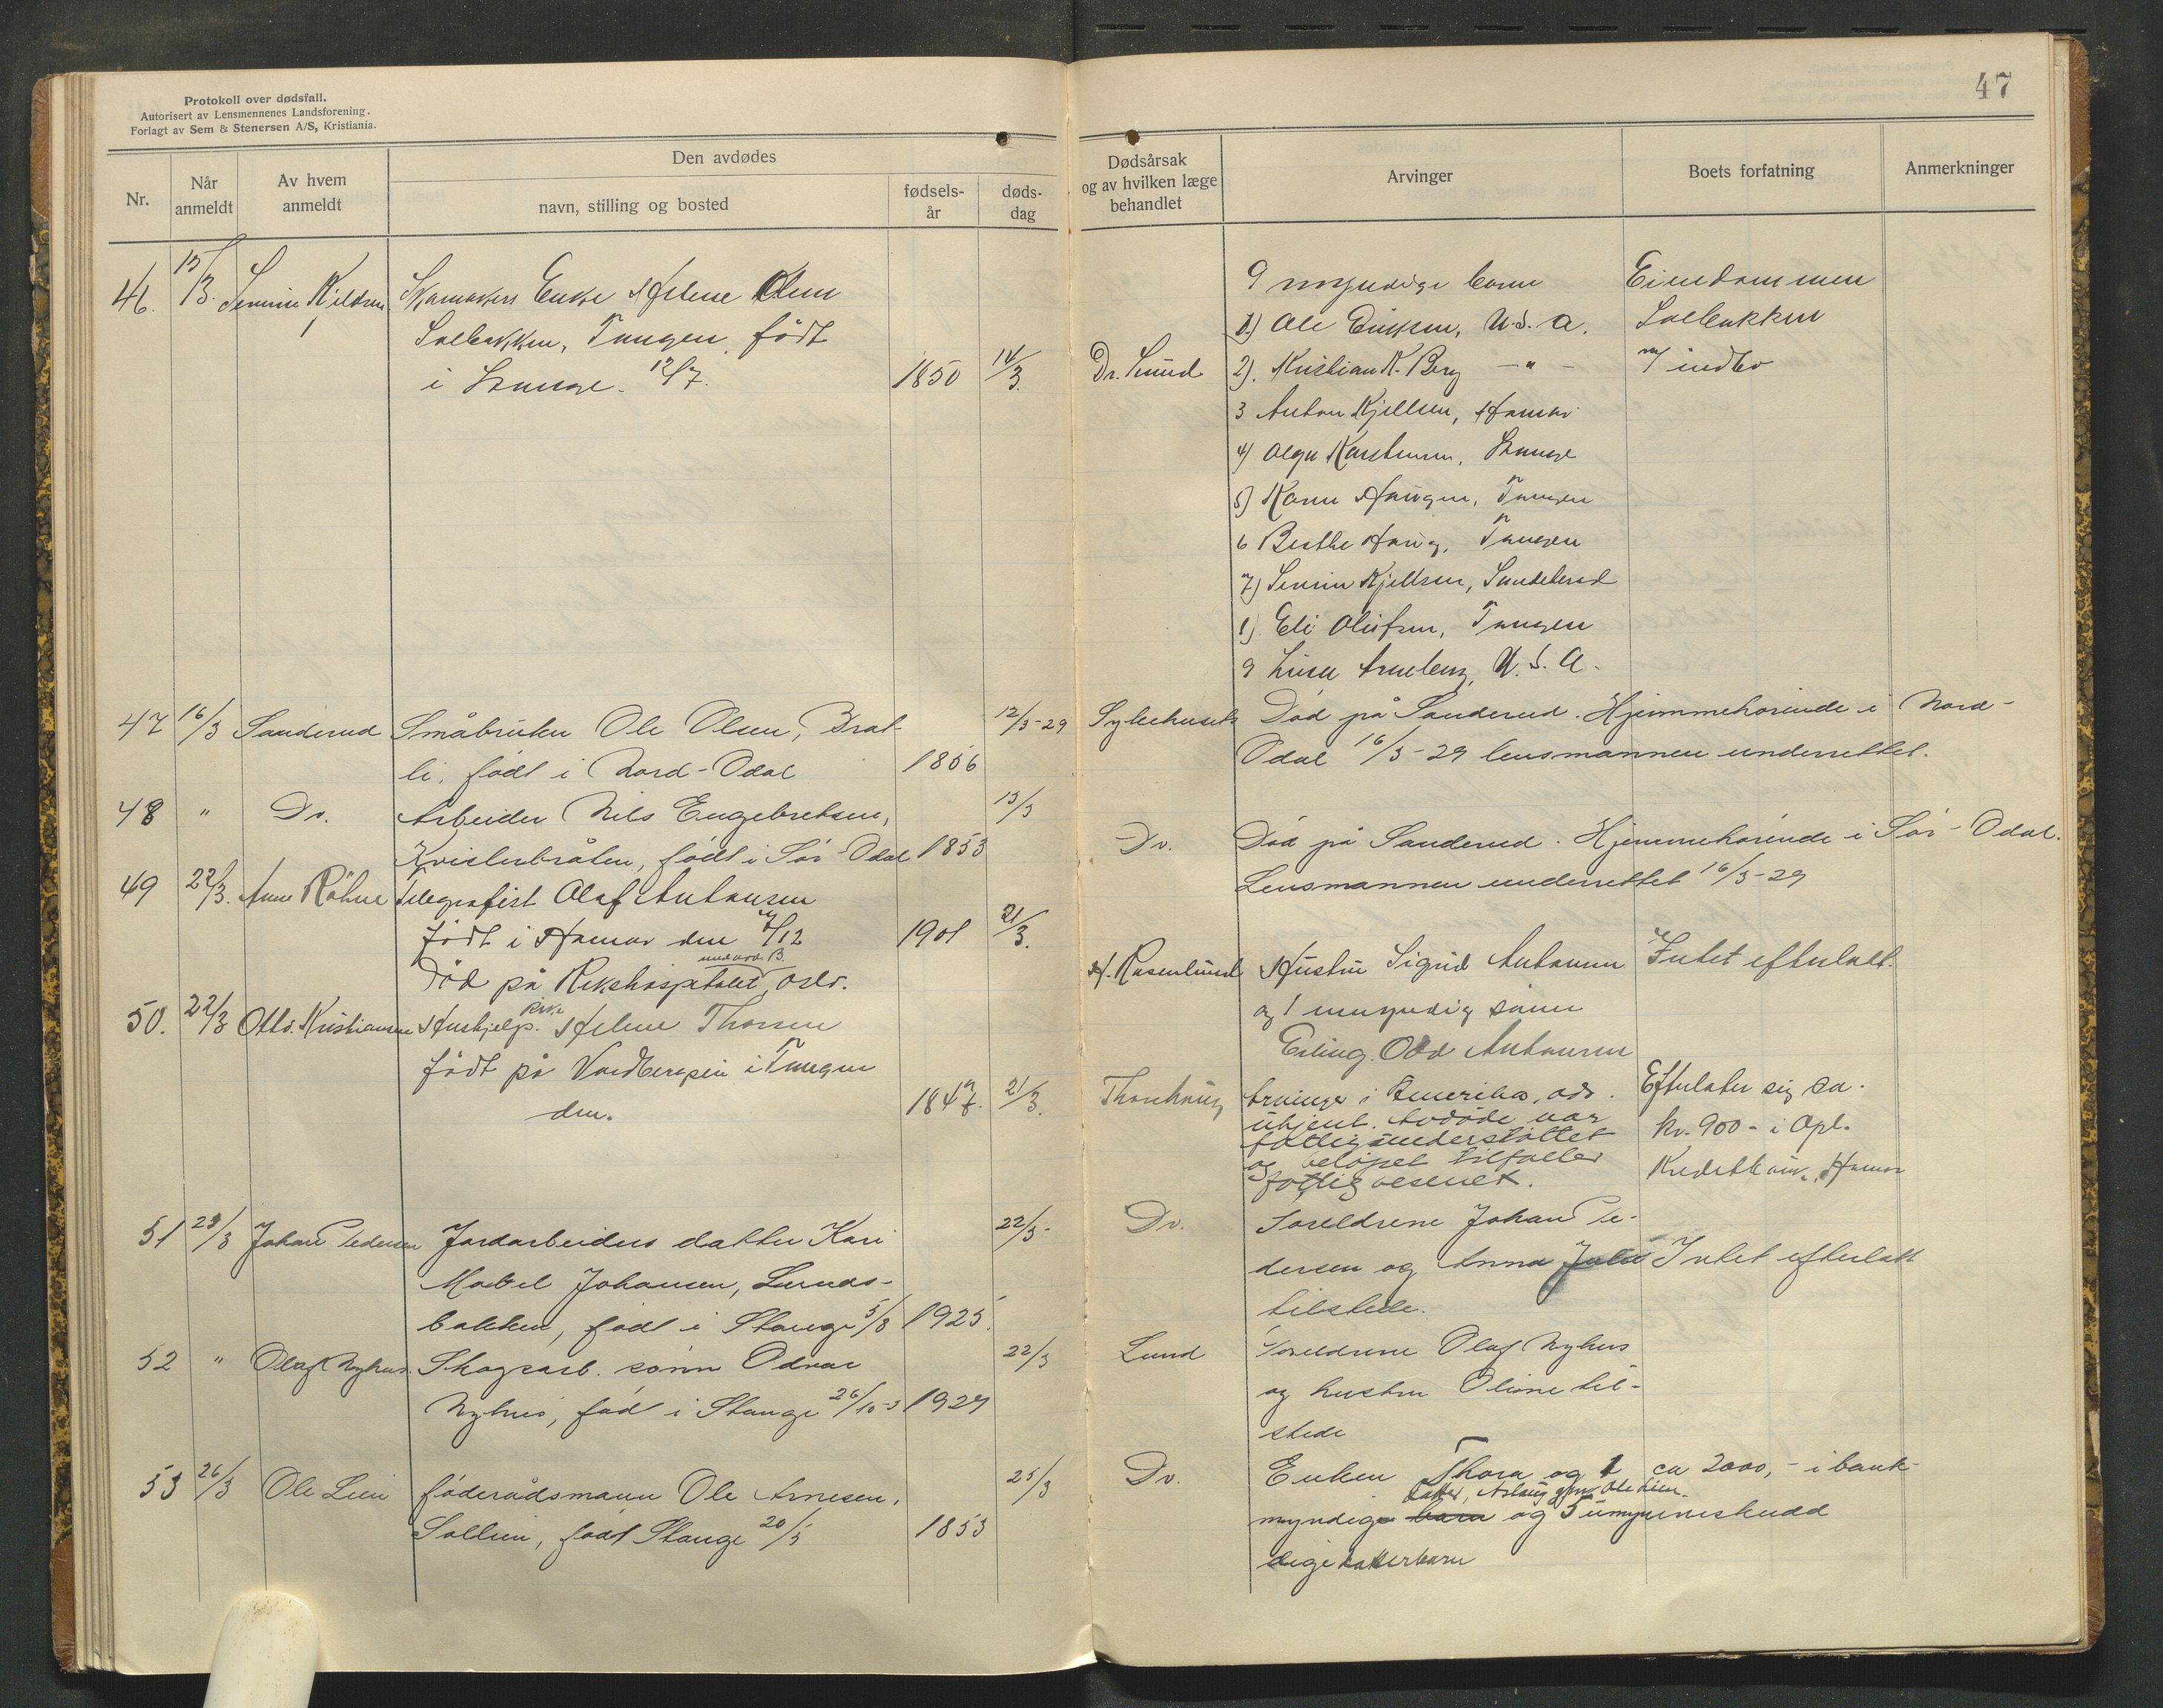 Protokoll over dødsfall.
Autorisert av Lensmennenes Landsforening.
Forlagt av Sem & Stenersen A/S, Kristiania.
Nr.
Når anmeldt
Av hvem anmeldt
Den avdødes
navn, stilling og bosted
fødsels-år
døds-dag
46. 15/3. Severin Kjeldsen Skomakers Enke Helene Olsen
Solbakken, Tangen, født
i Stange. 12/7. 1850 14/3.
47 16/3 Sanderud Småbruker Ole Olsen, Brat- 12/3-29
li, født i Nord-Odal 1856
48 " Do. Arbeider Nils Engebretsen, 15/3
Kvisterbråten, født i Sör-Odal 1853
49 22/3. Anne Röhne Telegrafist Olaf Antonsen
født i Hamar den /12 1901 21/3.
Död på Rikshospitalet, Oslo.
50. 22/3 Otto. Kristiansen Hushjelp. Helene Thorsen
født på Vardberspin i Tangen
den. 1847. 21/3.
51 23/3 Johan Pedersen Jordarbeiders datter Kari 22/3-
Mabel Johansen, Lunds-
bakken, født i Stange 5/8 1925.
52 " Olaf Nyhus. Skogsarb. sönn Odvar 22/3
Nyhus, föd i Stange 26/10-3 1927
53 26/3 Ole Lien föderådsmann Ole Arnesen, 25/3
Sollien, født Stange 20/5 1853
47
Dødsårsak
og av hvilken læge
behandlet
Arvinger
Boets forfatning
Anmerkninger
9 myndige barn Eiendommen
1) Ole Eriksen, U.S.A. Solbakken
Dr. Lund 2). Kristian K. Berg - " - m/ indbo
3 Anton Kjellsen, Hamar
4) Olga Karstensen, Stange
5) Karen Haugen, Tangen
6 Berthe Haug, Tangen
7) Severin Kjeldsen, Sanderud
8) Eli Olufsen, Tangen
9 Lina Arneberg, U.S.A.
Sykehusets Död på Sanderud. Hjemmehörende i Nord-
Odal 16/3-29 lensmannen underrettet.
Do. Död på Sanderud. Hjemmehörende i Sör-Odal.
Lensmannen underrettet 16/3-29
H. Rosenlund Hustru Sigrid Antonsen Intet efterlatt.
og 1 umyndig sönn
Erling. Odd Antonsen
Thorshaug Arvinger i Amerika, ads. Efterlater sig ca.
ukjent. Avdöde var kr. 900- i Opl.
fattigunderstöttet
og belöpet tilfaller Kreditbank, Hamar
fattigvesenet.
Do. Foreldrene Johan Pe-
dersen og Anna Julie Intet efterlatt
tilstede.
Lund Foreldrene Olaf Nyhus
og hustru Oline til-
stede
Do. Enken Thora og 1 ca 2000,- i bank-
datter, Aslaug gm. Ole Lien.
myndige barn og 5 umyn- innskudd
dige datterbarn